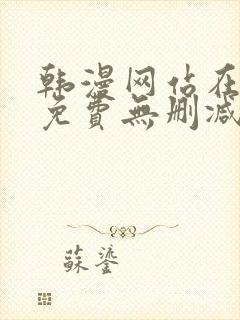 韩漫网站在
免費無删减
蘇鎏